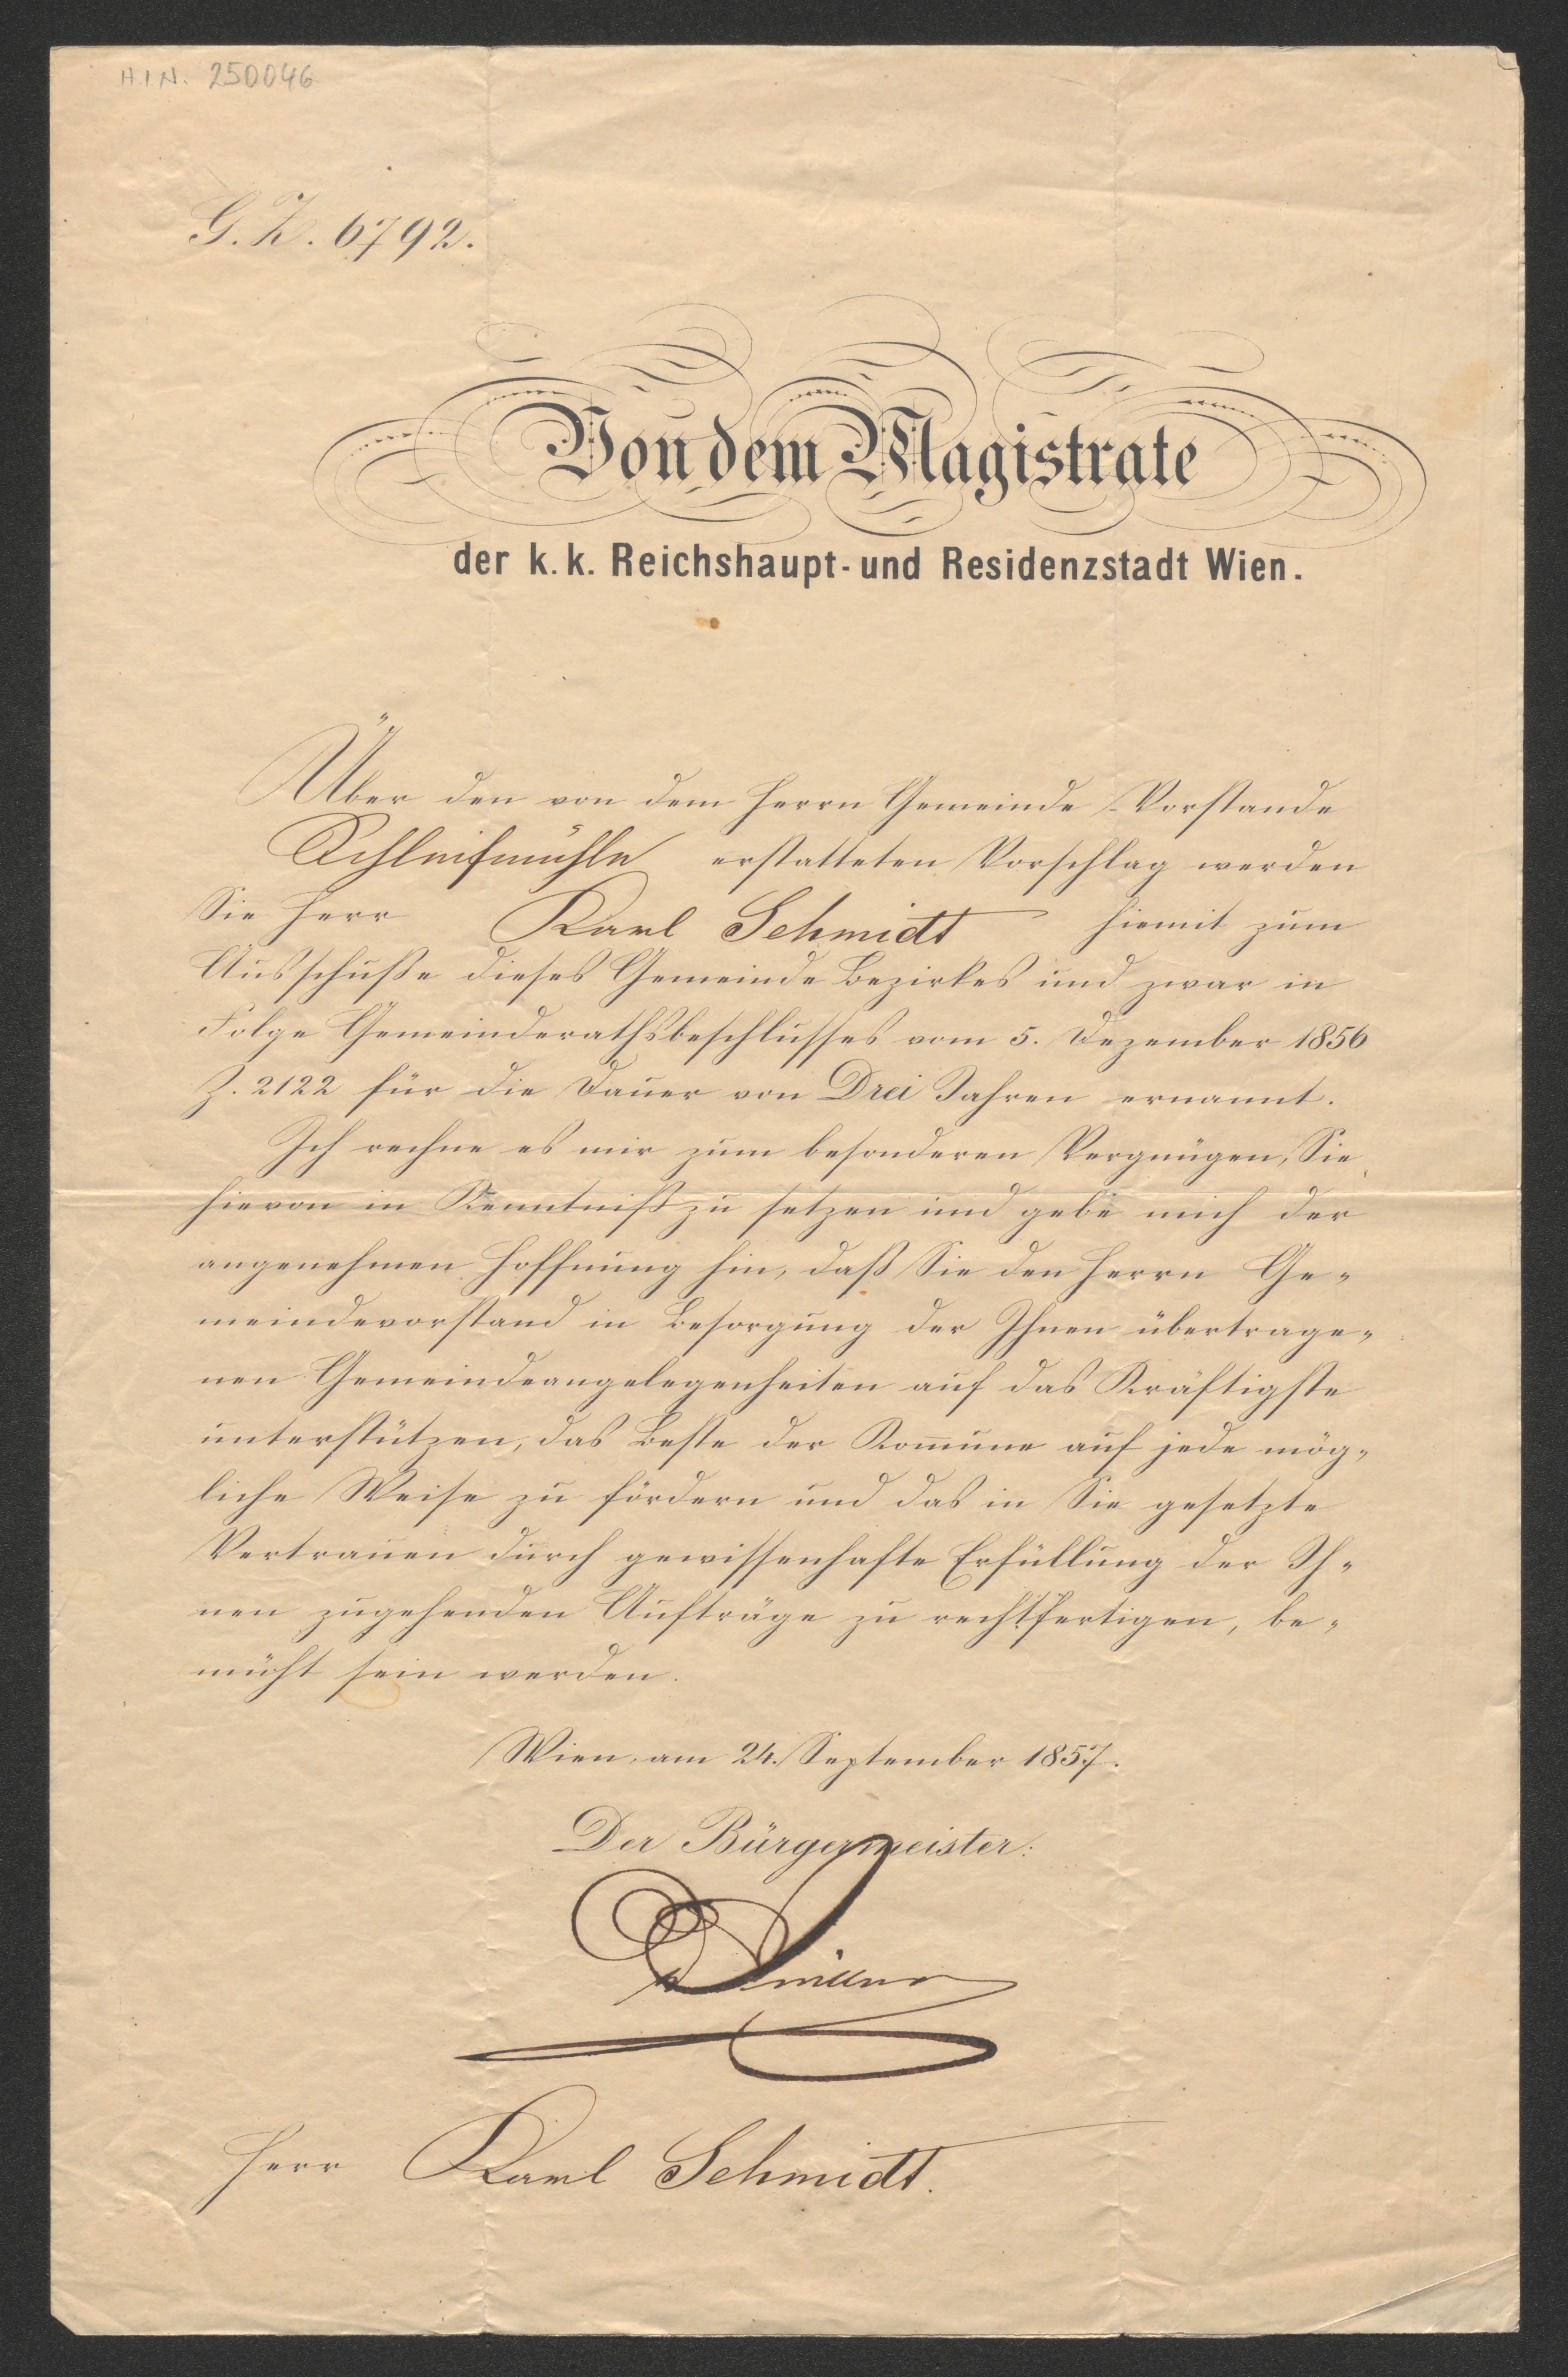 H.I.N. 250046
G. Z. 6792.
Von dem Magistrate
der k. k. Reichshaupt- und Residenzstadt Wien.
Über den von dem Herrn Gemeinde-Vorstande
Schleifmühle erstatteten Vorschlag werden
Sie Herr Karl Schmidt hiemit zum
Ausschuße dieses Gemeinde Bezirkes und zwar in
Folge Gemeinderathsbeschlusses vom 5. Dezember 1856
Z. 2122 für die Dauer von Drei Jahren ernannt.
Ich rechne es mir zum besonderen Vergnügen, Sie
hievon in Kenntniß zu setzen und gebe mich der
angenehmen Hoffnung hin, daß Sie den Herrn Ge-
meindevorstand in Besorgung der Ihnen übertrage-
nen Gemeindeangelegenheiten auf das Kräftigste
unterstützen, das Beste der Kom̅une auf jede mög-
liche Weise zu fördern und das in Sie gesetzte
Vertrauen durch gewissenhafte Erfüllung der Ih-
nen zugehenden Aufträge zu rechtfertigen, be-
müht sein werden.
Wien, am 24. September 1857.
Der Bürgermeister:
Herr Karl Schmidt.